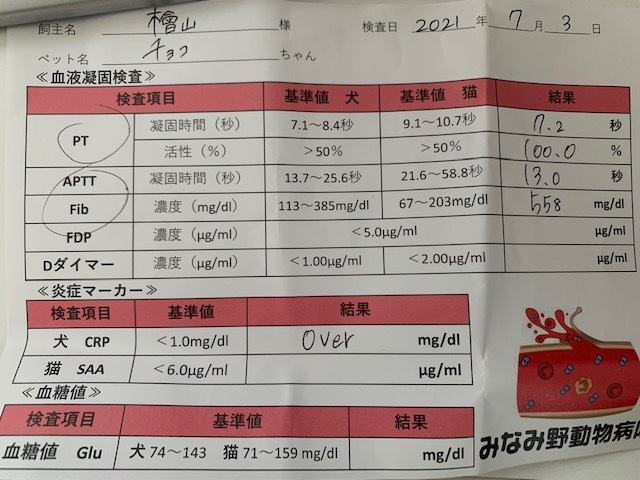 飼主名 檜山 様 検査日 2021 年 7 月 3 日
ペット名 チョコ ちゃん
≪血液凝固検査≫
検査項目 基準値 犬 基準値 猫 結果
PT 凝固時間（秒） 7.1～8.4秒 9.1～10.7秒 7.2 秒
活性（%） ＞50% ＞50% 100.0 %
APTT 凝固時間（秒） 13.7～25.6秒 21.6～58.8秒 13.0 秒
Fib 濃度（mg/dl） 113～385mg/dl 67～203mg/dl 558 mg/dl
FDP 濃度（μg/ml） ＜5.0μg/ml μg/ml
Dダイマー 濃度（μg/ml） ＜1.00μg/ml ＜2.00μg/ml μg/ml
≪炎症マーカー≫
検査項目 基準値 結果
犬 CRP ＜1.0mg/dl over mg/dl
猫 SAA ＜6.0μg/ml μg/ml
≪血糖値≫
検査項目 基準値 結果
血糖値 Glu 犬 74～143 猫 71～159 mg/dl mg/dl
みなみ野動物病